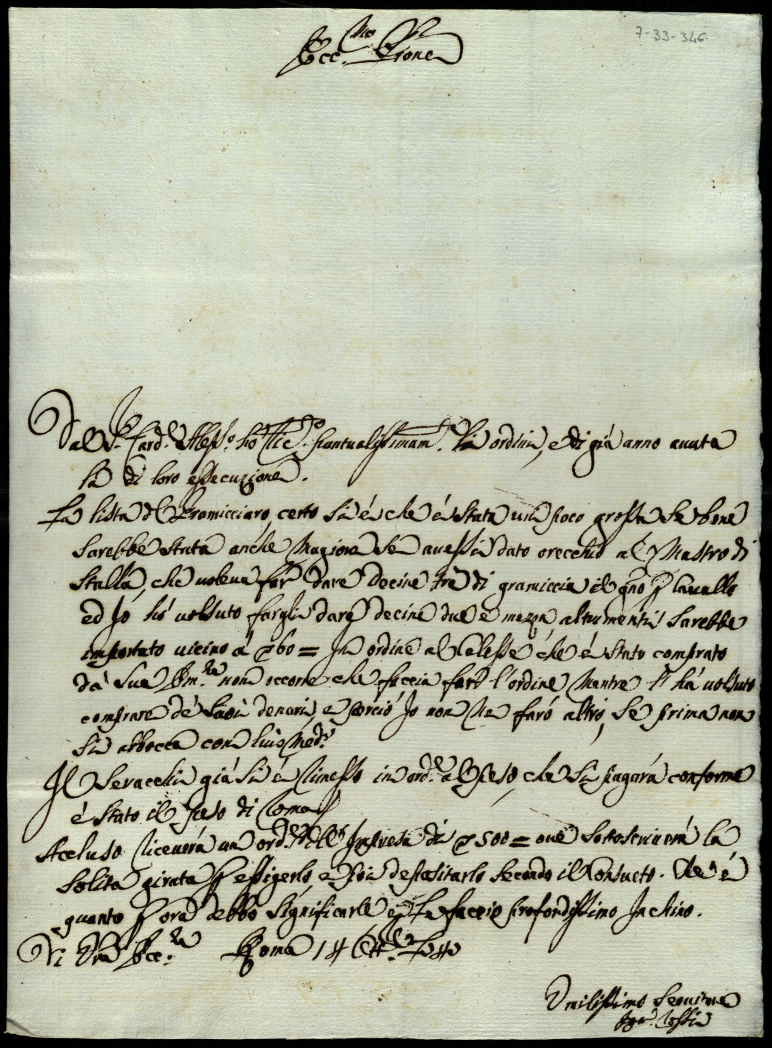 7-33-346
Ecc.mo P~rone
Dal S.r Card.le Aless.o hò puntualissimam.te li ordini, e di già anno avuta
la di loro essecuzione.
La lista del Gramicciaro certo si è che è stata un poco grossa se bene
sarebbe stata anche magiore se avessi dato orecchio al Mastro di
stalla, che voleva far dare decine trè di gramiccia il gno p Cavallo
ed Io hò volsuto fargli dare decine due e mezza altrimenti sarebbe
importato vicino à 60 = In ordine al Calesse che è stato comprato
dà Sua Em.za non occorre che faccia fare l'ordine mentre l'hà volsuto
comprare dè suoi denari, e perciò Io non ne farò altro, se prima non
si abocca con lui med.o
Il già si è rimesso in ord.e al peso, che si pagarà conforme
è stato il peso di Roma
Acluso riceverà un ord.e dell' Impresa di 500 = ove sottoscriverà la
solita girata p essigerlo e poi depositarlo secondo il consueto. Che è
quanto p ora debbo significarle e le faccio profondissimo Inchino.
Di Vra Ecc.za Roma 14
Umilissimo Servitore